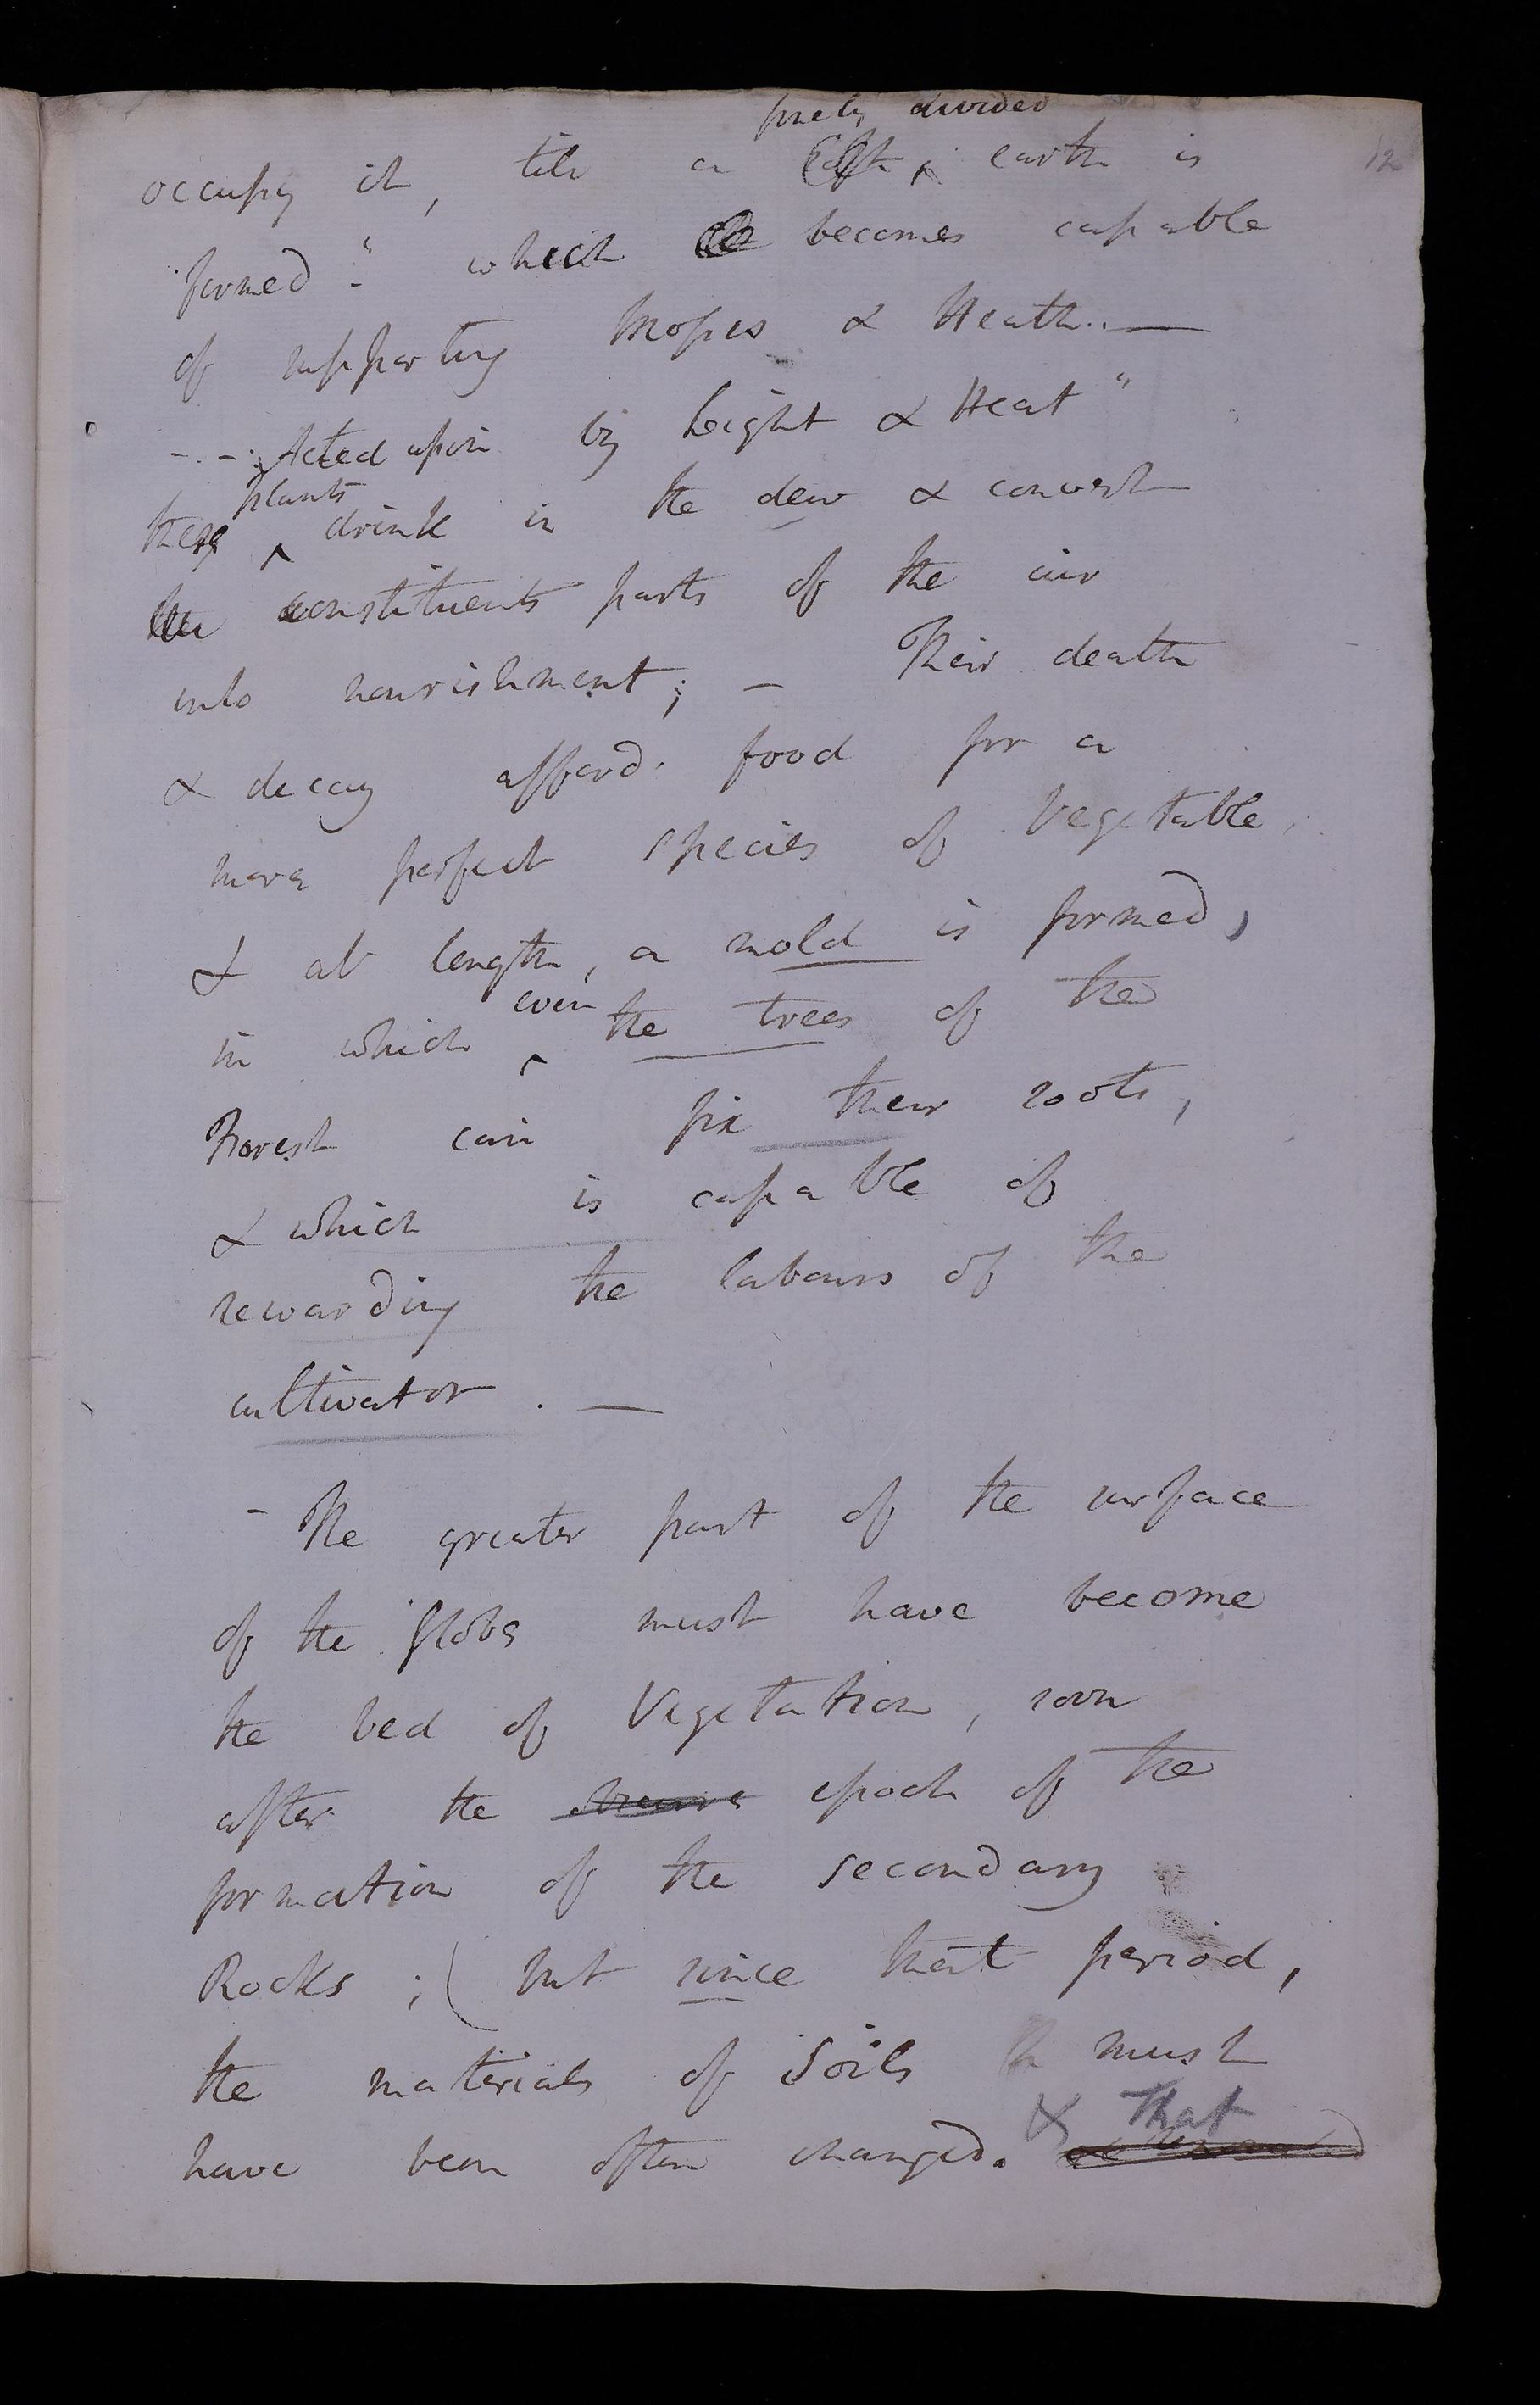 12
finely divided
occupy it, till a earth is
formed." which becomes capable
of supporting Mosses & Heath. —
- . - . Acted upon by Light & Heat"
plants
these ^ drink in the dew & convert
the constituents parts of the air
into nourishment; — Their death
& decay afford food for a
more perfect species of Vegetable
& at length, a mold is formed,
even
in which ^ the trees of the
Forest can fix their roots,
& which is capable of
rewarding the labours of the
cultivator. —
- The greater part of the surface
of the Globe must have become
the bed of Vegetation, soon
after the epoch of the
formation of the secondary
Rocks ; ( but since that period,
the materials of Soils must
& That
have been often changed.